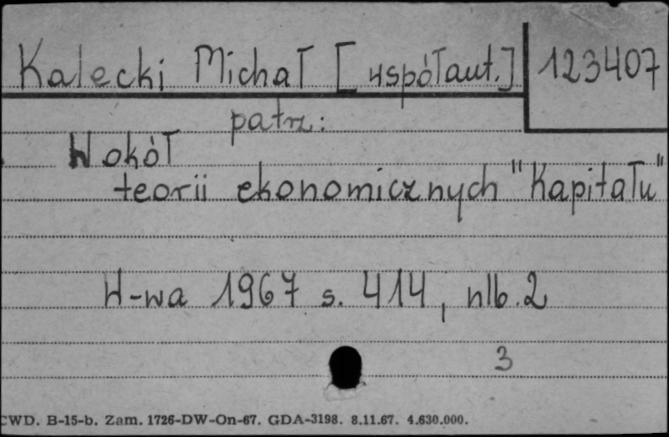 Kalecki Michał [współaut.] 123407
patrz:
Wokół
teorii ekonomicznych "Kapitału"
W-wa 1967 s. 414, nlb. 2
3
CWD. B-15-b. Zam. 1726-DW-On-67. GDA-3198. 8.11.67. 4.630.000.